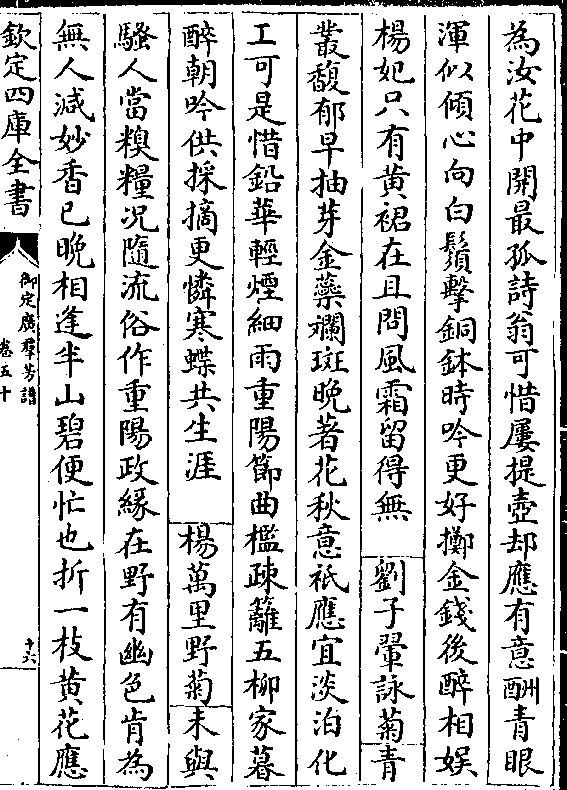 為汝花中開最孤詩翁可惜屢提壺却應有意酬青眼
渾似傾心向白鬚擊銅鉢時吟更好擲金錢後醉相娱
楊妃只有黄裙在且問風霜留得無　劉子翬詠菊青
叢馥郁早抽芽金蘂斕斑晚著花秋意祇應宜淡泊化
工可是惜鉛華輕煙細雨重陽節曲檻疎籬五柳家暮
醉朝吟供採摘更憐寒蝶共生涯　楊萬里野菊未與
騷人當糗糧况隨流俗作重陽政緣在野有幽色肯為
無人減妙香已晚相逢半山碧便忙也折一枝黄花應
欽定四庫全書
御定廣羣芳譜
卷五十
十六